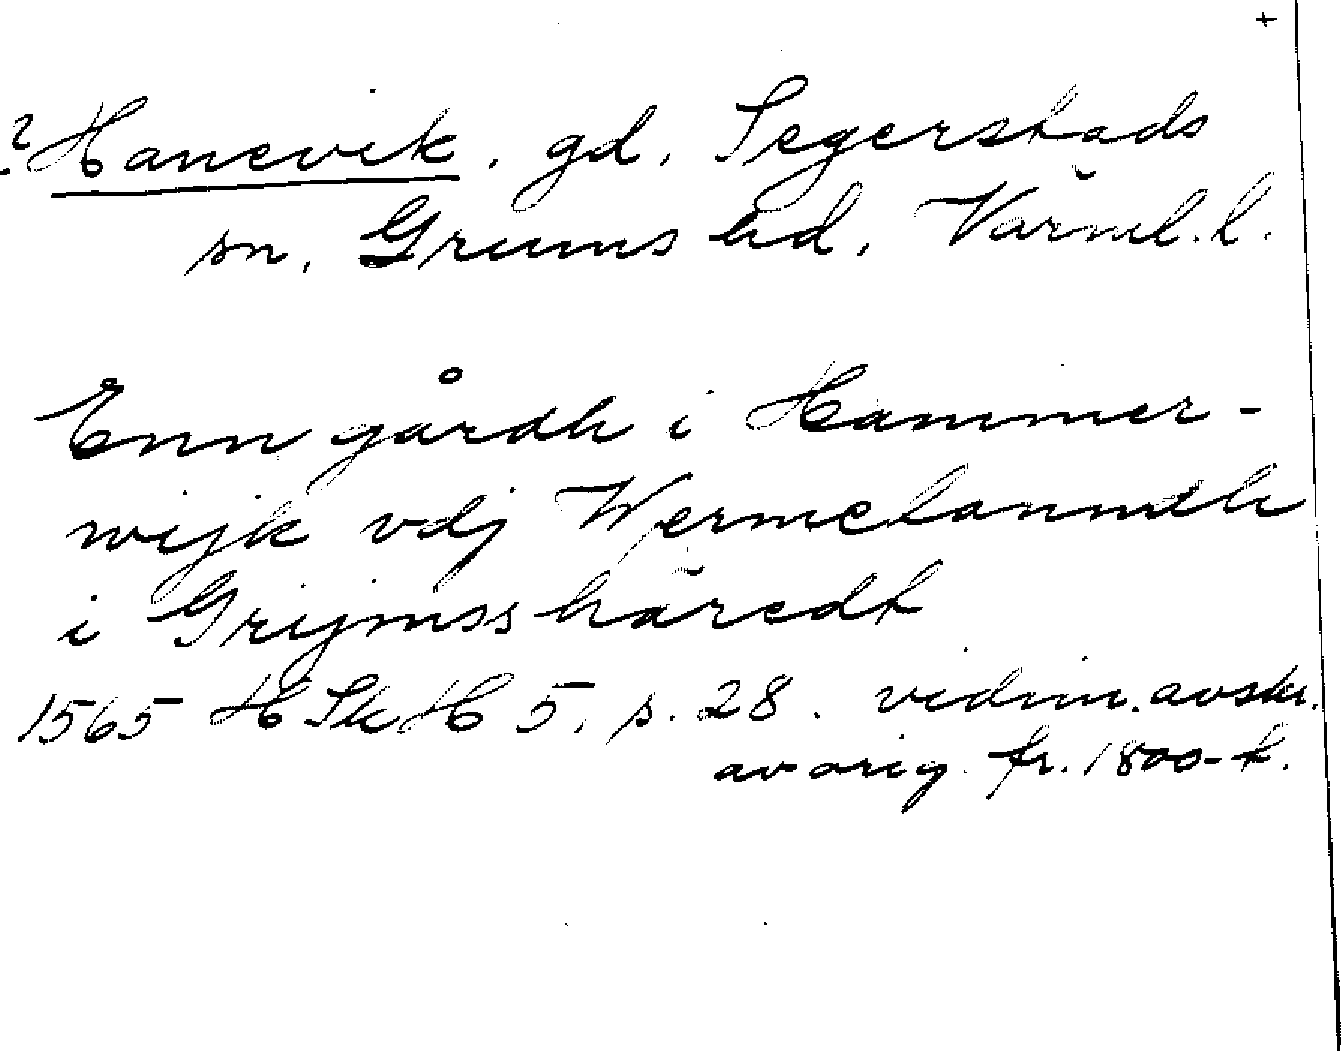 +
? Hanevik, gd, Segerstads
sn, Grums hd, Värml. l.
Enn gårdh i Hammer-
wijk vdj Wermelanndh
i Grijmsshäredt
1565 HSkH 5, s. 28. vidim. avskr.
av orig. fr. 1800-t.